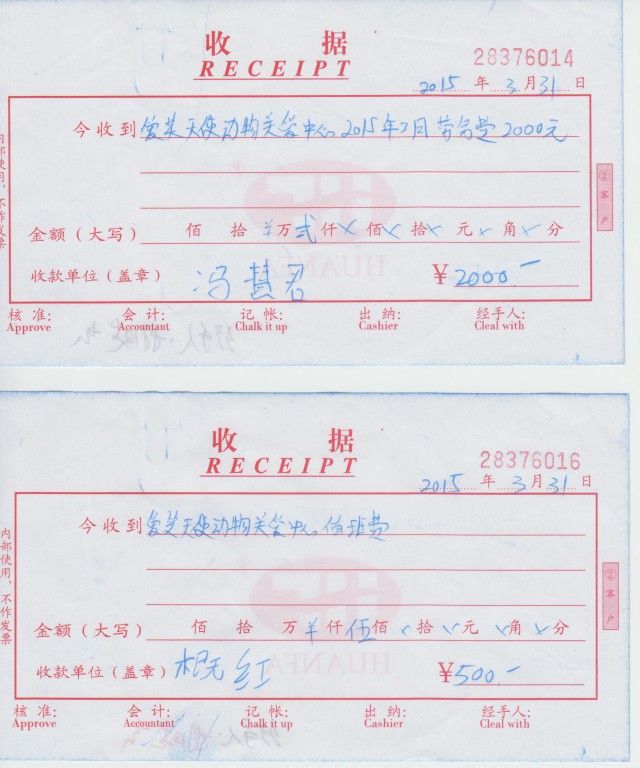 收 据
28376014
RECEIPT
2015 年 3 月 31 日
今收到 爱芙天使动物关爱中心 2015年3月 劳务费 2000元
金额（大写） 佰 拾 ¥万 贰 仟 × 佰 × 拾 × 元 × 角 × 分
收款单位（盖章） 冯慧君 ¥2000.-
核 准: 会 计: 记 帐: 出 纳: 经手人:
Approve Accountant Chalk it up Cashier Cleal with
内部使用，不作发票
② 客 户
HUANFA
收 据
28376016
RECEIPT
2015 年 3 月 31 日
今收到 爱芙天使动物关爱中心 值班费
金额（大写） 佰 拾 万 ¥ 仟 伍 佰 × 拾 × 元 × 角 × 分
收款单位（盖章） 红 ¥500.-
核 准: 会 计: 记 帐: 出 纳: 经手人:
Approve Accountant Chalk it up Cashier Cleal with
内部使用，不作发票
② 客 户
HUANFA